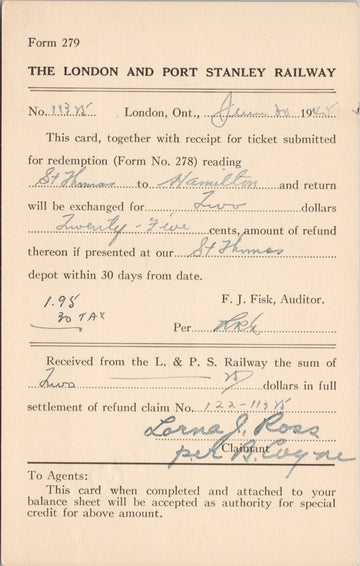 Form 279
THE LONDON AND PORT STANLEY RAILWAY
No. 11325 London, Ont., June 20 1945
This card, together with receipt for ticket submitted
for redemption (Form No. 278) reading
St Thomas to Hamilton and return
will be exchanged for Two dollars
Twenty-Five cents, amount of refund
thereon if presented at our St Thomas
depot within 30 days from date.
1.95
30 TAX
F. J. Fisk, Auditor.
Per
Received from the L. & P. S. Railway the sum of
Two 25 dollars in full
settlement of refund claim No. 122-11325
Lorna J. Ross
Claimant
per B. Coyne
To Agents:
This card when completed and attached to your
balance sheet will be accepted as authority for special
credit for above amount.